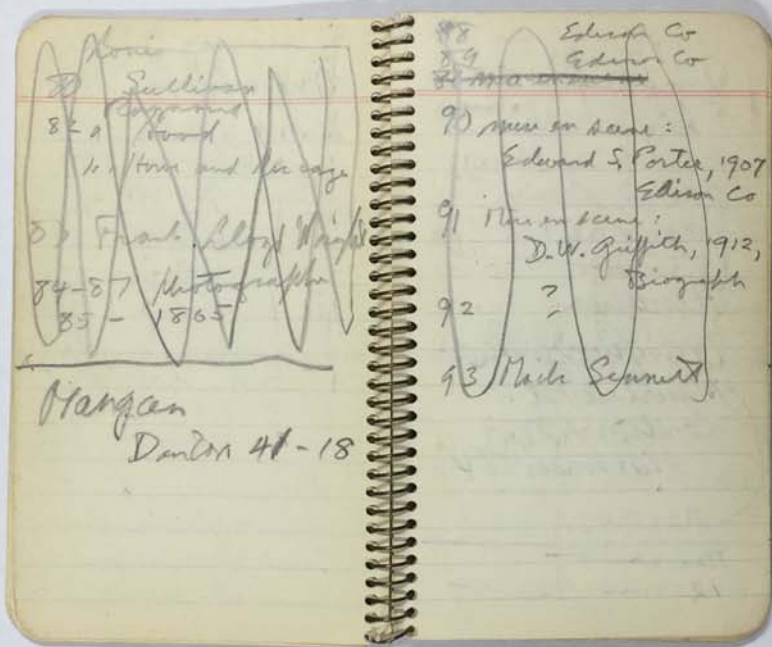 Louis
80 Sullivan
Raymond
82 a Hood
b Howe and Lescaze
83 Frank Lloyd Wright
84-87 Photographs
85 - 1865
Mangan
Denton 41-18
88 Edison Co
89 Edison Co
90 mise en scene :
Edward S. Porter, 1907
Edison Co
91 Mise en scene :
D.W. Griffith, 1912,
Biograph
92 ?
93 Mack Sennett